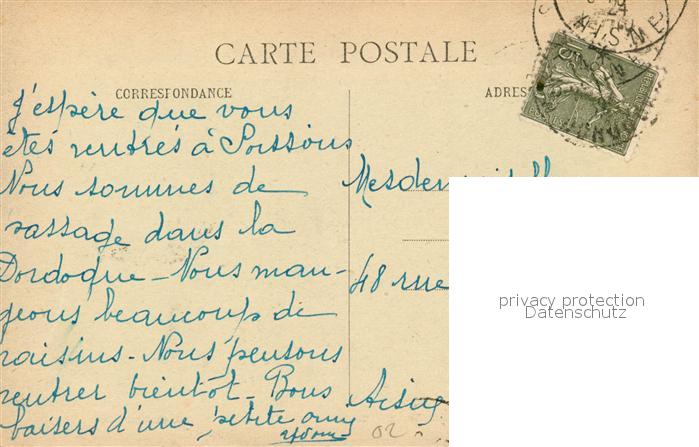 CARTE POSTALE
CORRESPONDANCE
J'espère que vous
êtes rentrés à Soissons
Nous sommes de
passage dans la
Dordogne - Nous man-
geons beaucoup de
raisins - Nous pensons
rentrer bientôt - Bons
baisers d'une petite
ADRES
48 rue
Aisne
privacy protection
Datenschutz
02